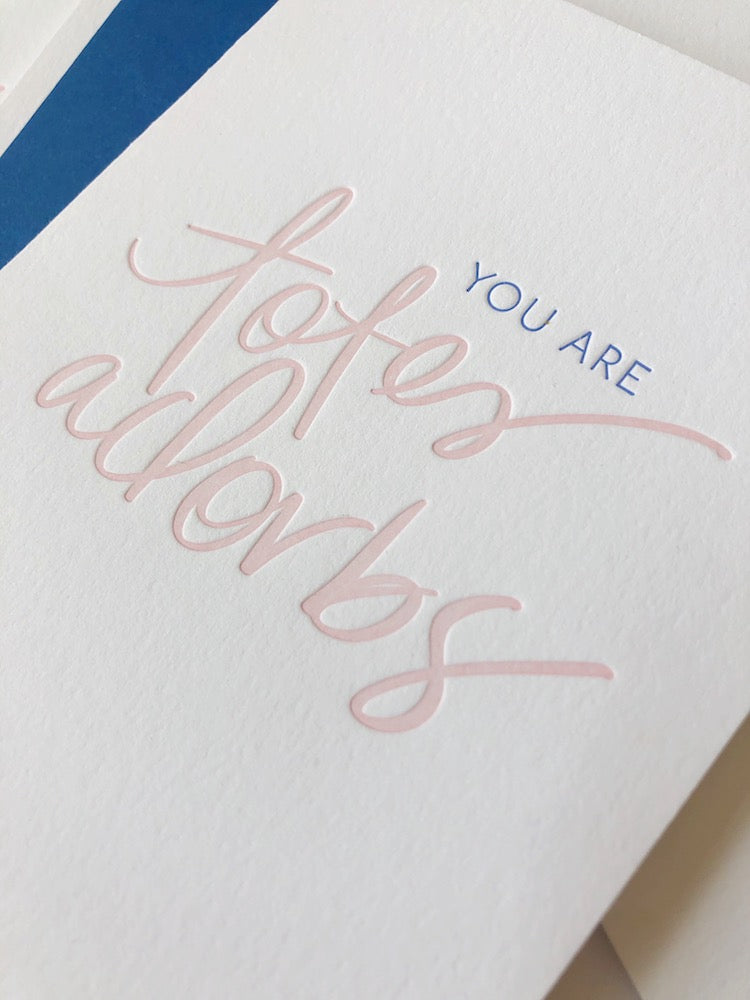 YOU ARE
totes
adorbs